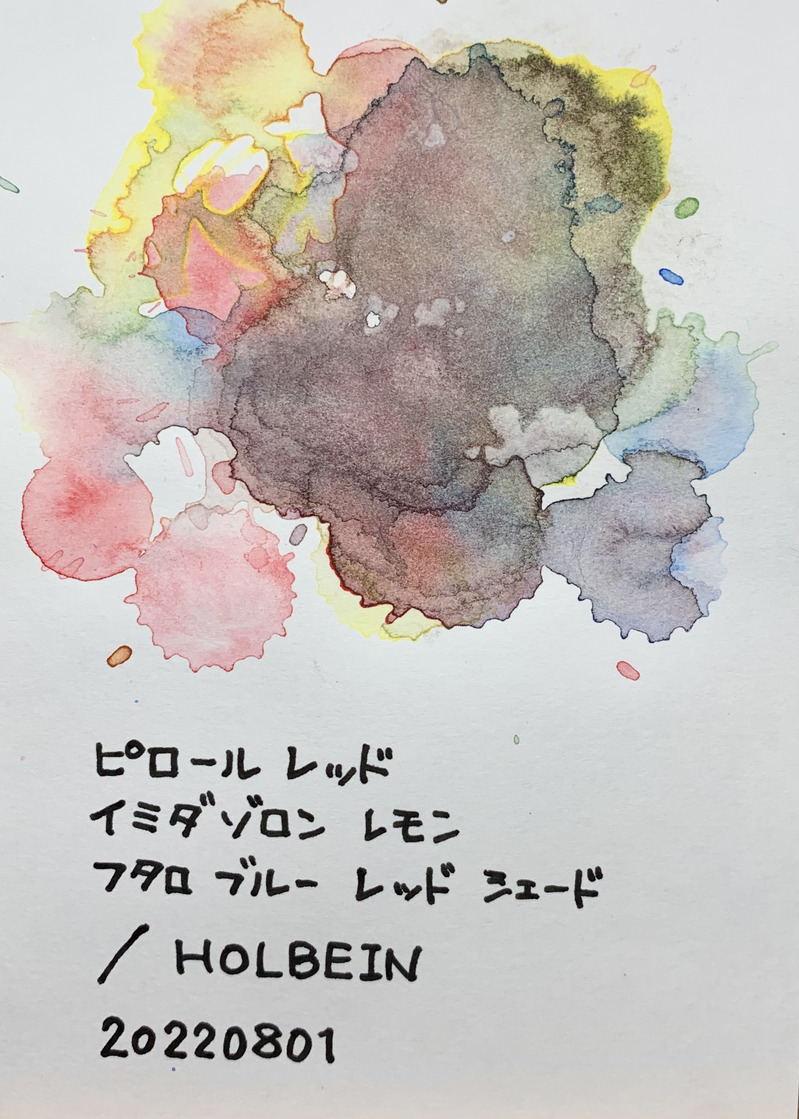 ピロール レッド
イミダゾロン レモン
フタロ ブルー レッド シェード
/ HOLBEIN
20220801